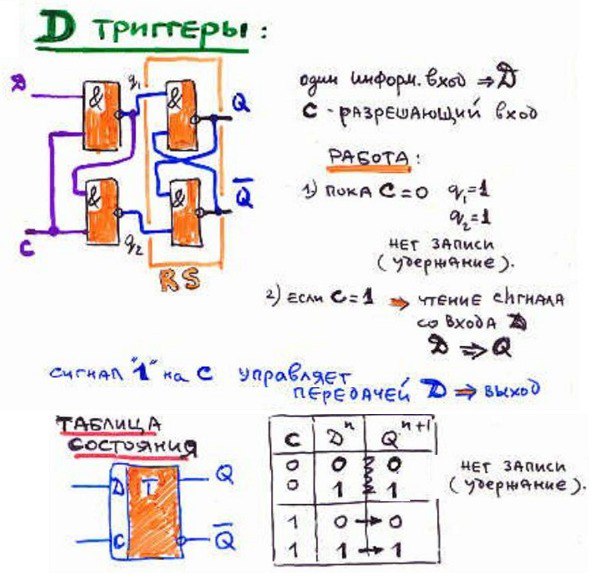 D ТРИГГЕРЫ:
D
q1
&
&
Q
один информ. вход ⇒ D
C - РАЗРЕШАЮЩИЙ ВХОД
РАБОТА:
&
&
Q̅
C
q2
RS
1) ПОКА C = 0 q1 = 1
q2 = 1
НЕТ ЗАПИСИ
(удержание).
2) ЕСЛИ C = 1 ⇒ ЧТЕНИЕ СИГНАЛА
СО ВХОДА D
D ⇒ Q
СИГНАЛ "1" на C УПРАВЛЯЕТ
ПЕРЕДАЧЕЙ D ⇒ ВЫХОД
ТАБЛИЦА
СОСТОЯНИЯ
D T Q
C Q̅
C Dⁿ Qⁿ⁺¹
0 0 0
0 1 1
1 0 → 0
1 1 → 1
НЕТ ЗАПИСИ
(удержание).